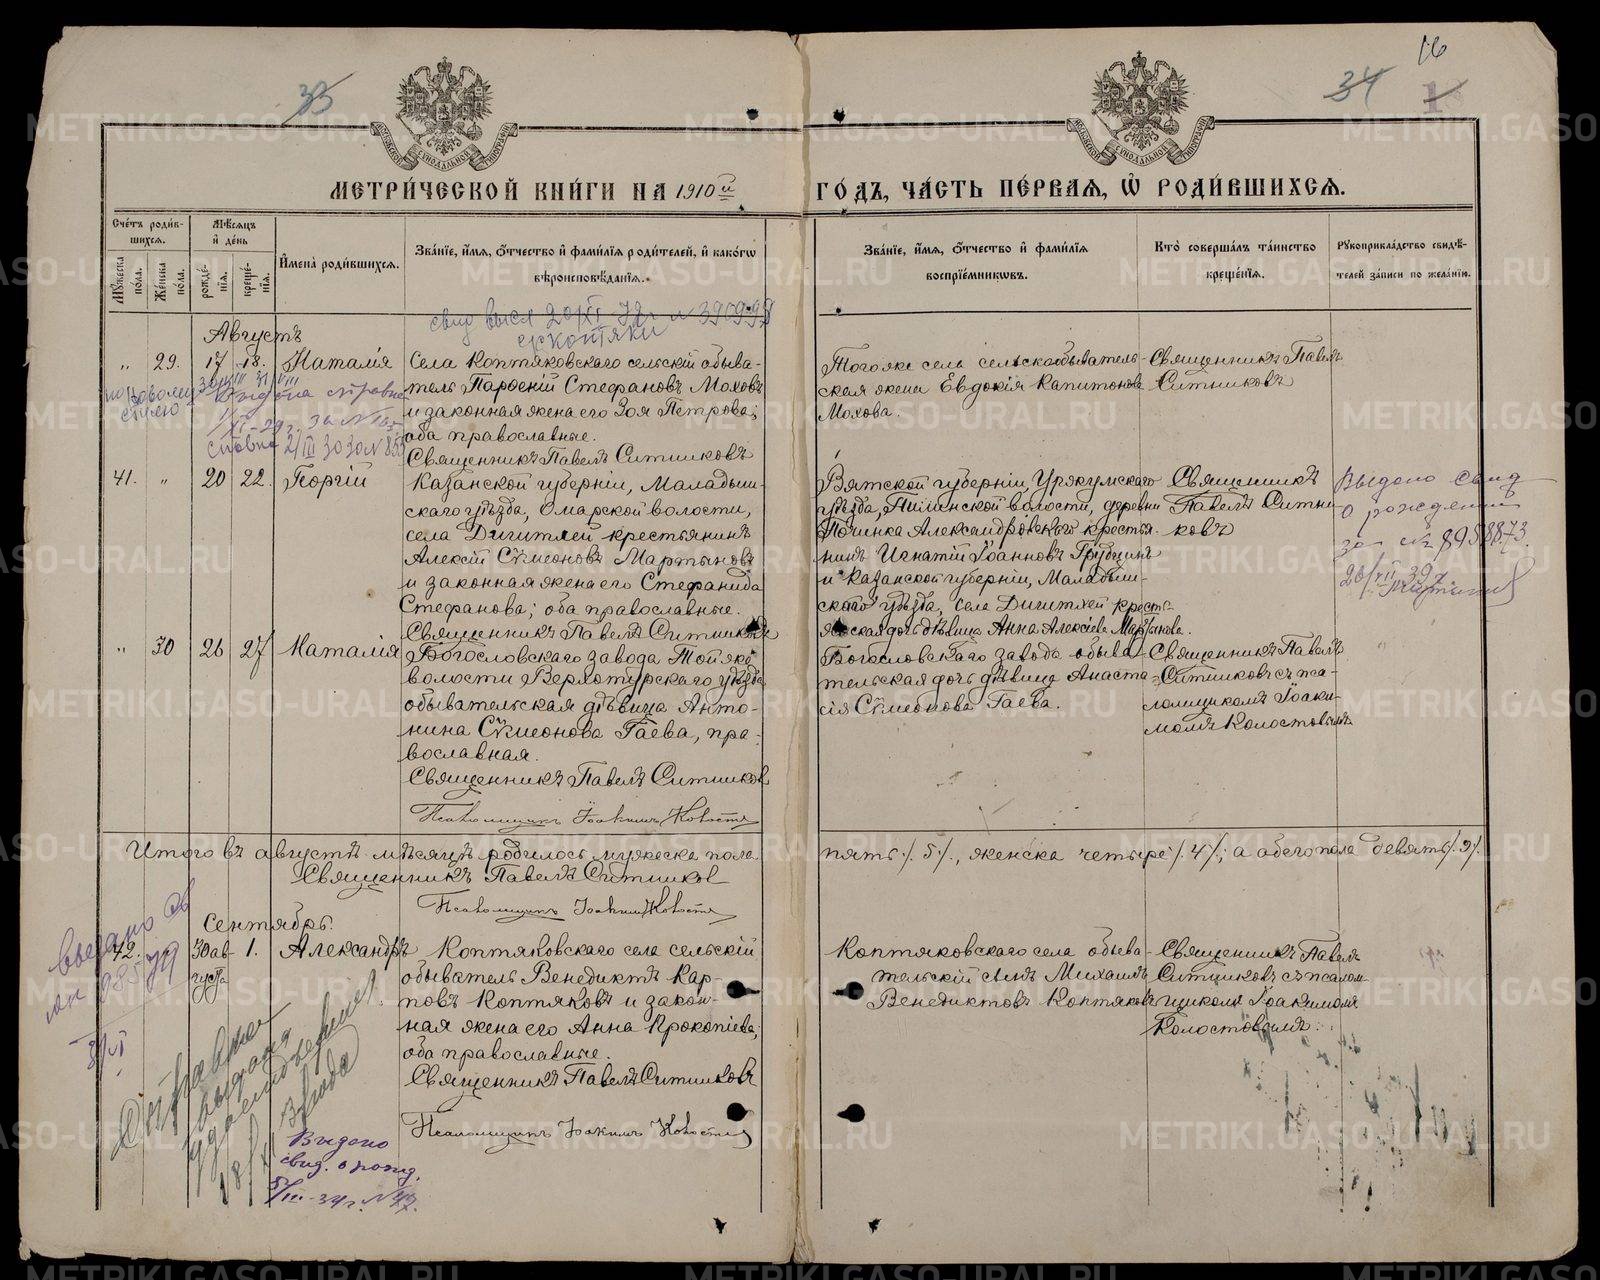 33
34
16
МОСКОВСКОЙ СѴНОДАЛЬНОЙ ТИПОГРАФІИ
МОСКОВСКОЙ СѴНОДАЛЬНОЙ ТИПОГРАФІИ
МЕТРИ́ЧЕСКОЙ КНИ́ГИ НА 1910й
ГО́ДЪ, ЧА́СТЬ ПЕ́РВАЯ, Ѡ҆ РОДИ́ВШИХСЯ.
Сче́тъ роди́в-
шихся.
Мꙋ́жеска по́ла.
Же́нска по́ла.
Мѣ́сяцъ
и҆ де́нь
рожде́-
нїя.
креще́-
нїя.
И҆мена̀ роди́вшихся.
Зва́нїе, и҆́мя, ѻ҆́тчество и҆ фами́лїя роди́телей, и҆ како́гѡ
вѣроисповѣ́данїя.
Зва́нїе, и҆́мя, ѻ҆́тчество и҆ фами́лїя
воспрїе́мникѡвъ.
Кто̀ соверша́лъ та́инство
креще́нїя.
Рꙋкоприкла́дство свидѣ́-
телей за́писи по жела́нїю.
Августъ
„ 29. 17 18. Наталія
Села Коптяковскаго сельскій обыва-
тель Парѳеній Стефановъ Моховъ
и законная жена его Зоя Петрова;
оба православные.
Священникъ Павелъ Ситниковъ
Тогоже села сельскообыватель-
ская жена Евдокія Капитонова
Мохова.
Священникъ Павелъ
Ситниковъ
41. „ 20 22. Георгій
Казанской губерніи, Мамадыш-
скаго уѣзда, Омарской волости,
села Дигитлей крестьянинъ
Алексій Сѵмеоновъ Мартыновъ
и законная жена его Стефанида
Стефанова; оба православные.
Священникъ Павелъ Ситниковъ
Вятской губерніи, Уржумскаго
уѣзда, волости, деревни
Починка Александровскаго крестья-
нинъ Игнатій Іоанновъ
и Казанской губерніи, Мамадыш-
скаго уѣзда, села Дигитлей кресть-
янская дочь дѣвица Анна Алексіева Мартынова.
Священникъ
Павелъ Ситни-
ковъ
Выдано свид
о рождении
за №
„ 30 26 27 Наталія
Богословскаго завода Той же
волости Верхотурскаго уѣзда
обывательская дѣвица Анто-
нина Сѵмеонова Гаева, пра-
вославная.
Священникъ Павелъ Ситниковъ
Псаломщикъ Іоакимъ
Богословскаго завода обыва-
тельская дочь дѣвица Анаста-
сія Сѵмеонова Гаева.
Священникъ Павелъ
Ситниковъ съ пса-
ломщикомъ Іоаки-
момъ
Итого въ августѣ мѣсяцѣ родилось мужеска пола
пять /.5/., женска четыре /.4/.; а обего пола девять /.9/.
Священникъ Павелъ Ситников
Псаломщикъ Іоакимъ
Сентябрь.
42. 30 ав-
густа
1. Александръ
Коптяковскаго села сельскій
обыватель Венедиктъ Кар-
повъ Коптяковъ и закон-
ная жена его Анна Прокопіева;
оба православные.
Священникъ Павелъ Ситниковъ
Псаломщикъ Іоакимъ
Коптяковскаго села обыва-
тельскій сынъ Михаилъ
Венедиктовъ Коптяковъ
Священникъ Павелъ
Ситниковъ съ псалом-
щикомъ Іоакимомъ
Выдано
свид. о рожд.
METRIKI.GASO-URAL.RU